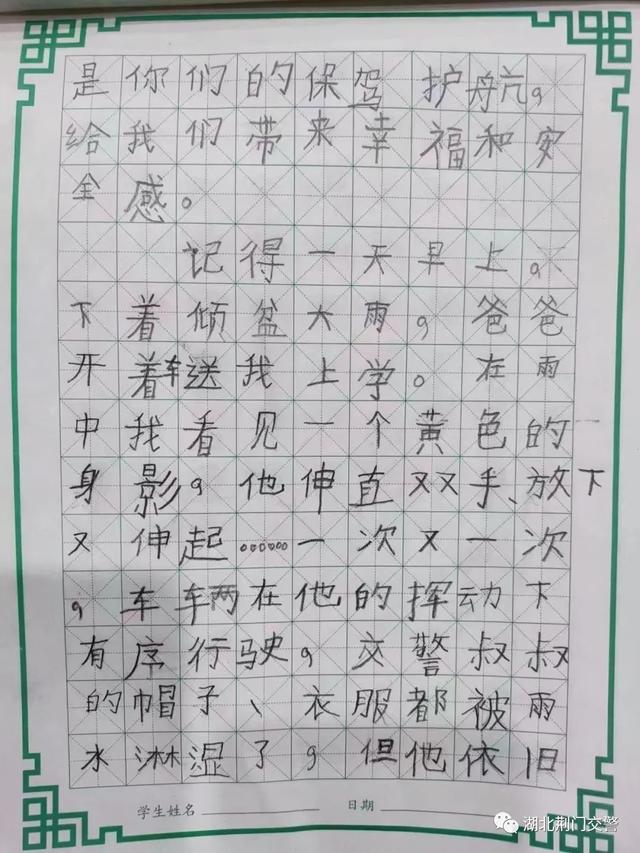 是你们的保驾护航，
给我们带来幸福和安
全感。
记得一天早上，
下着倾盆大雨，爸爸
开着车送我上学。在雨
中我看见一个黄色的
身影，他伸直双手、放下
又伸起……一次又一次
，车车两在他的挥动下
有序行驶，交警叔叔
的帽子、衣服都被雨
水淋湿了，但他依旧
学生姓名 日期
湖北荆门交警